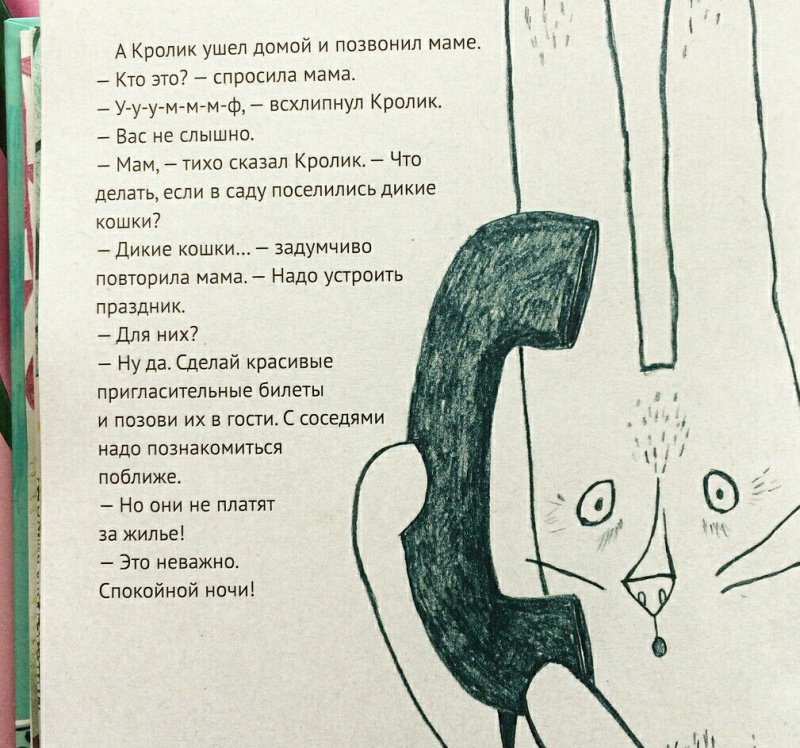 А Кролик ушел домой и позвонил маме.
— Кто это? — спросила мама.
— У-у-у-м-м-м-ф, — всхлипнул Кролик.
— Вас не слышно.
— Мам, — тихо сказал Кролик. — Что
делать, если в саду поселились дикие
кошки?
— Дикие кошки... — задумчиво
повторила мама. — Надо устроить
праздник.
— Для них?
— Ну да. Сделай красивые
пригласительные билеты
и позови их в гости. С соседями
надо познакомиться
поближе.
— Но они не платят
за жилье!
— Это неважно.
Спокойной ночи!